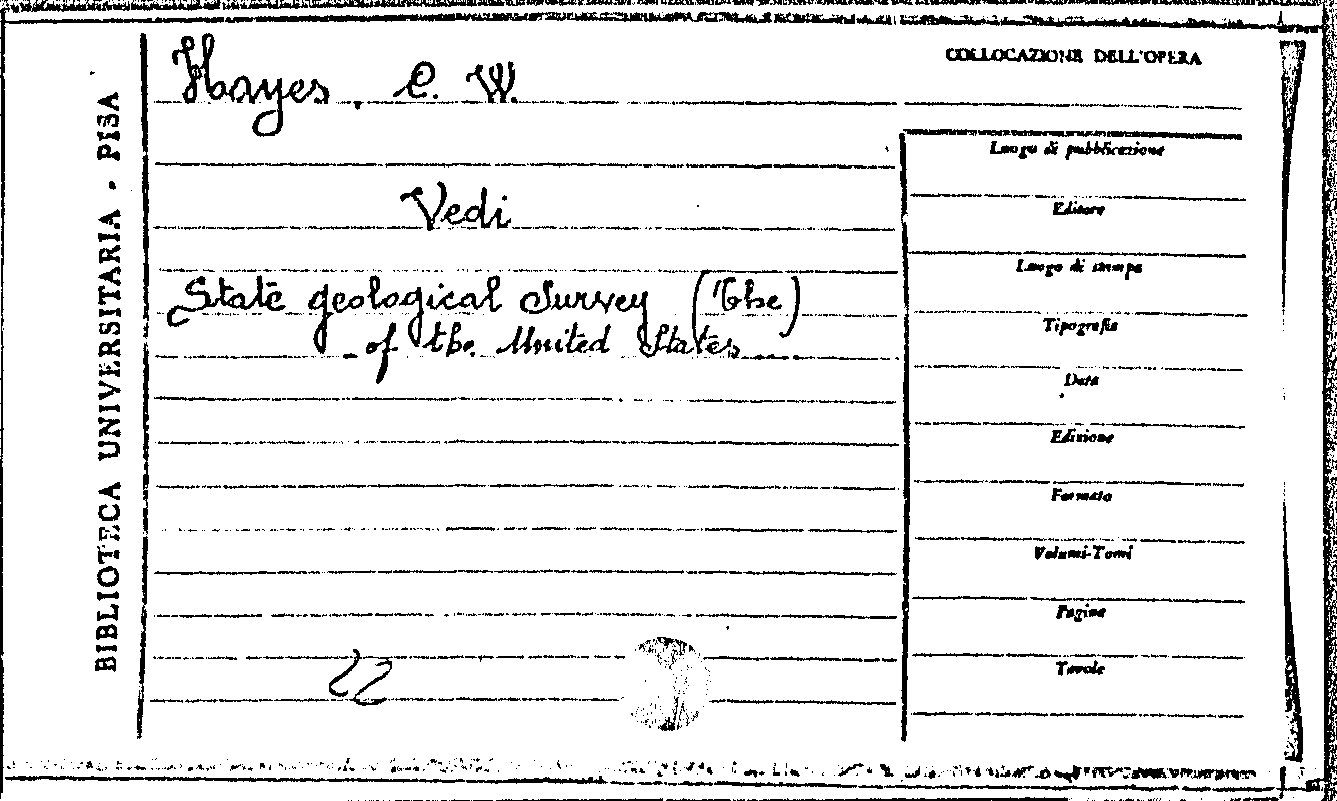 BIBLIOTECA UNIVERSITARIA - PISA
Hayes, C. W.
Vedi
State geological Survey (The)
of the United States
COLLOCAZIONE DELL'OPERA
Luogo di pubblicazione
Editore
Luogo di stampa
Tipografia
Data
Edizione
Formato
Volumi-Tomi
Pagine
Tavole